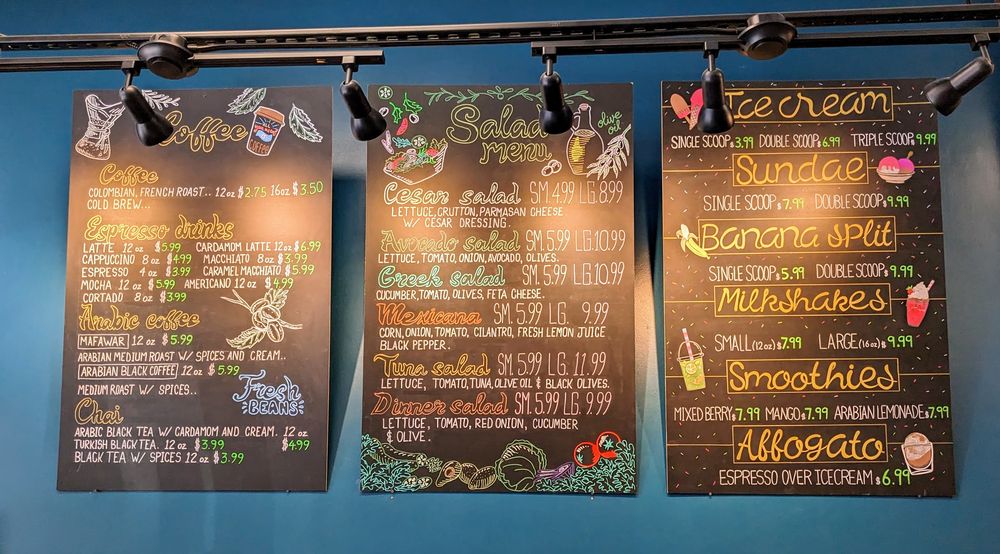 Coffee
COFFEE
Coffee
COLOMBIAN, FRENCH ROAST.. 12oz $2.75 16oz $3.50
COLD BREW...
Espresso drinks
LATTE 12oz $5.99 CARDAMOM LATTE 12oz $6.99
CAPPUCCINO 8oz $4.99 MACCHIATO 8oz $3.99
ESPRESSO 4oz $3.99 CARAMEL MACCHIATO $5.99
MOCHA 12oz $5.99 AMERICANO 12oz $4.99
CORTADO 8oz $3.99
Arabic coffee
MAFAWAR 12oz $5.99
ARABIAN MEDIUM ROAST W/ SPICES AND CREAM..
ARABIAN BLACK COFFEE 12oz $5.99
MEDIUM ROAST W/ SPICES..
Fresh
BEANS
Chai
ARABIC BLACK TEA W/ CARDAMOM AND CREAM. 12oz
$4.99
TURKISH BLACK TEA. 12oz $3.99
BLACK TEA W/ SPICES 12oz $3.99
Salad
menu
olive
oil
Cesar salad SM 4.99 LG. 8.99
LETTUCE, CRUTTON, PARMASAN CHEESE
W/ CESAR DRESSING.
Avocado salad SM. 5.99 LG. 10.99
LETTUCE, TOMATO, ONION, AVOCADO, OLIVES.
Greek salad SM. 5.99 LG. 10.99
CUCUMBER, TOMATO, OLIVES, FETA CHEESE.
Mexicana SM. 5.99 LG. 9.99
CORN, ONION, TOMATO, CILANTRO, FRESH LEMON JUICE
BLACK PEPPER.
Tuna salad SM. 5.99 LG. 11.99
LETTUCE, TOMATO, TUNA, OLIVE OIL & BLACK OLIVES.
Dinner salad SM. 5.99 LG. 9.99
LETTUCE, TOMATO, RED ONION, CUCUMBER
& OLIVE.
Ice cream
SINGLE SCOOP $3.99 DOUBLE SCOOP $6.99 TRIPLE SCOOP $9.99
Sundae
SINGLE SCOOP $7.99 DOUBLE SCOOP $9.99
Banana split
SINGLE SCOOP $5.99 DOUBLE SCOOP $9.99
Milkshakes
SMALL (12oz) $7.99 LARGE (16oz) $9.99
Smoothies
MIXED BERRY $7.99 MANGO $7.99 ARABIAN LEMONADE $7.99
Affogato
ESPRESSO OVER ICECREAM $6.99